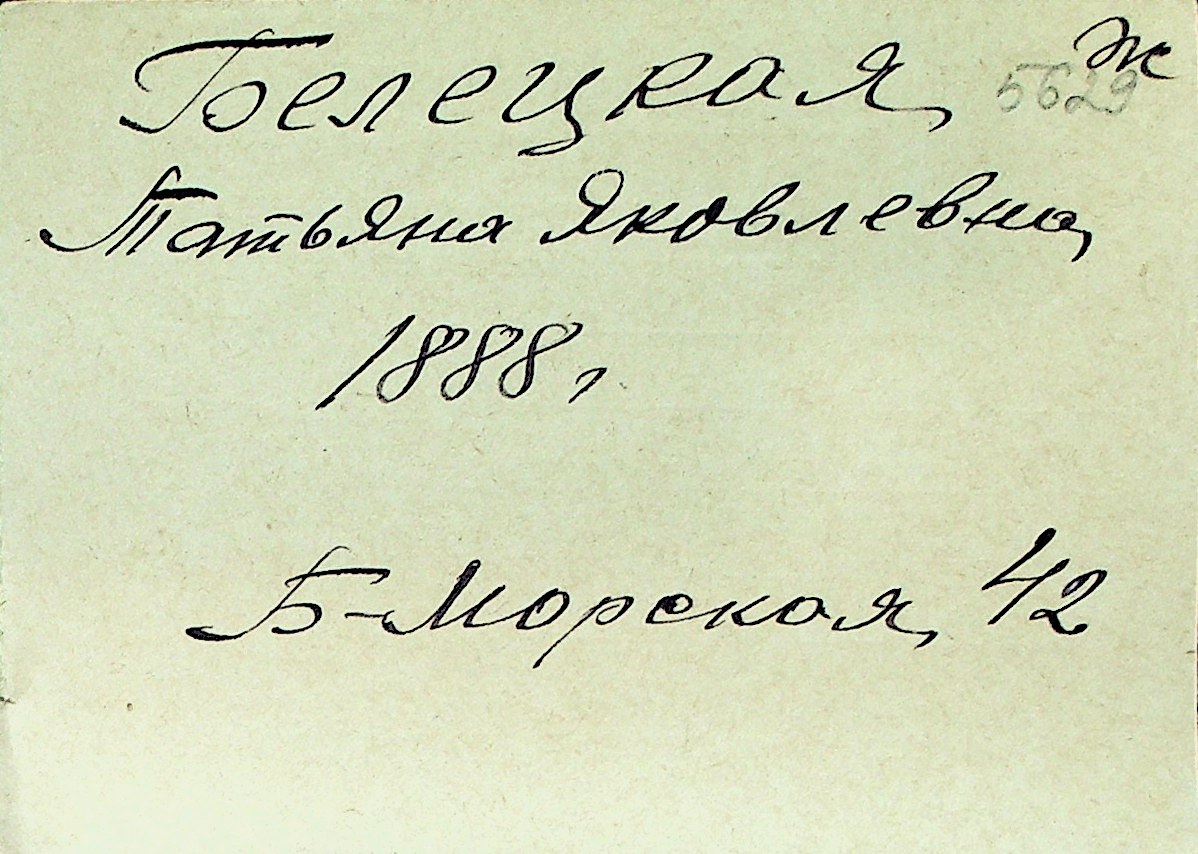 Белецкая, ж
5629
Татьяна Яковлевна,
1888,
Б-Морская, 42